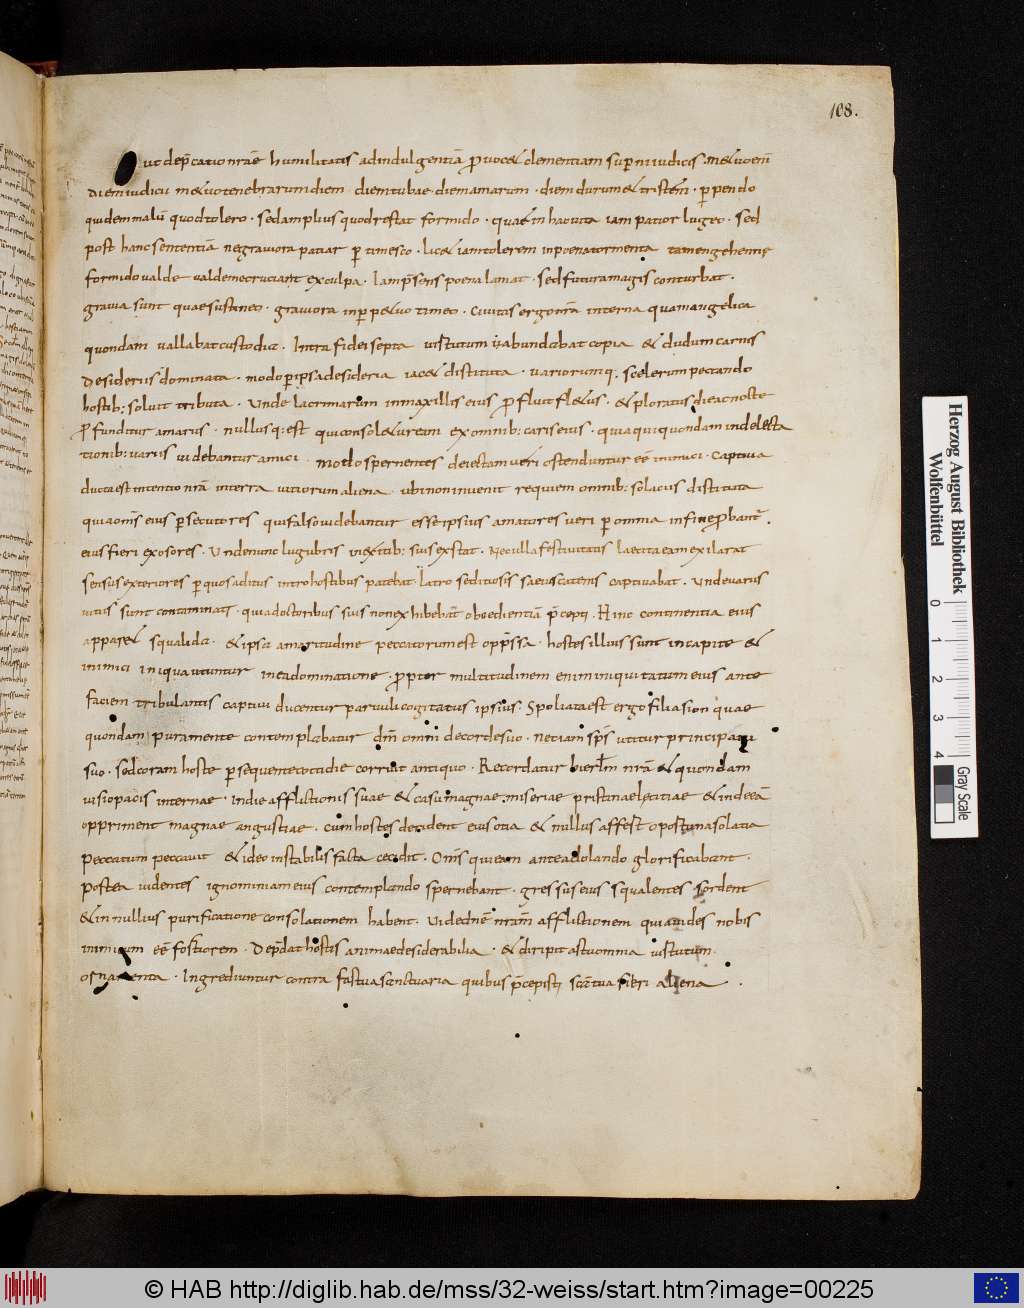 108.
ut dep̄catio nr̄ae humilitatis ad indulgentiā ꝓuocet clementiam sup̄ni iudicis metuo eni
diem iudicii metuo tenebrarum diem diem tubae diem amarum · diem durum et tristem · perpendo
quidem malū quod tolero · sed amplius quod restat formido · quae in hac uita iam patior lugeo · sed
post hanc sententiā ne grauiora patiar ꝑtimesco · licet iam tolerem in poena tormenta tamen gehennę
formido ualde ualde me cruciant ex culpa · Iam p̄sens poena laniat · sed futura magis conturbat ·
grauia sunt quae sustineo · grauiora in ꝑpetuo timeo · Ciuitas ergo nr̄a interna quam angelica
quondam uallabat custodia · Intra fidei septa uirtutum ubi abundabat copia et dudum carnis
desideriis dominata · modo ꝑ ipsa desideria iacet distituta · uariorumq; scelerum peccando
hostib; soluit tributa · Unde lacrimarum in maxillis eius ꝓfluit fletus · et ploratus die ac nocte
ꝓfunditur amarus · nullusq; est qui consoletur eam ex omnib; caris eius · quia qui quondam in delecta
tionib; uariis uidebantur amici · modo spernentes deiectam ueri ostenduntur eē inimici · Captiua
ducta est intentio nr̄a in terra uitiorum aliena · ubi non inuenit requiem omnib; solaciis distituta
quia oms̄ eius ꝑsecutores qui falso uidebantur esse ipsius amatores ueri ꝑ omnia in fine ꝓbant̄ ·
eius fieri exosores · Unde nunc lugubris uię exitib; suis exstat · Nec ulla festiuitatis laetitia eam exilarat
sensus exteriores ꝑ quos aditus intro hostibus patebat · latro seditiosis saeuis catenis captiuabat · Unde uariis
uitiis sunt contaminati · quia doctoribus suis non exhibebant oboedientiā p̄cepti · Hinc continentia eius
apparet squalida · et ipsa amaritudine peccatorum est opp̄ssa · hostes illius sunt in capite et
inimici iniqua utuntur in ea dominatione · ꝓpter multitudinem enim iniquitatum eius ante
faciem tribulantis captiui ducentur paruuli cogitatus ipsius · Spoliata est ergo filia sion quae
quondam pura mente contemplabatur dn̄m omni decor de suo · nec iam sp̄s utitur principatu
suo · sed coram hoste ꝑsequente cotidie corruit antiquo · Recordatur hierlm̄ nr̄a et quondam
uisio pacis internae · in die afflictionis suae et casu magnae miseriae pristinae letitiae et in deea
oppriment magnae angustiae · cum hostes derident eius otia et nullus affert oportuna solatia
peccatum peccauit et ideo instabilis facta cecidit · Oms̄ qui eam ante adolando glorificabant ·
postea uidentes ignominiam eius contemplando spernebant · gressus eius squalentes sordent
et in nullius purificatione consolationem habent · Uide dn̄e nr̄am afflictionem quia uides nobis
inimicum eē fortiorem · Dep̄dat hostis animae desiderabilia · et diripit astu omnia uirtutum
ornamenta · Ingrediuntur contra fas tua sanctuaria quibus p̄cepisti scr̄tua fieri aliena ·
Herzog August Bibliothek
Wolfenbüttel
0 1 2 3 4
Gray Scale
© HAB http://diglib.hab.de/mss/32-weiss/start.htm?image=00225